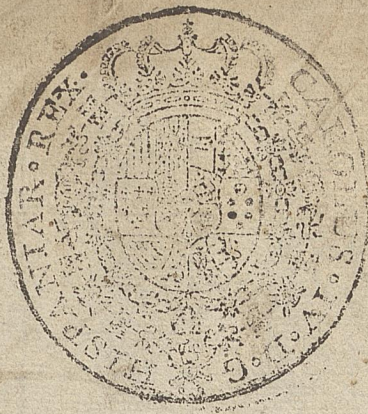 CAROLUS·IV·D·G·HISPANIAR·REX·